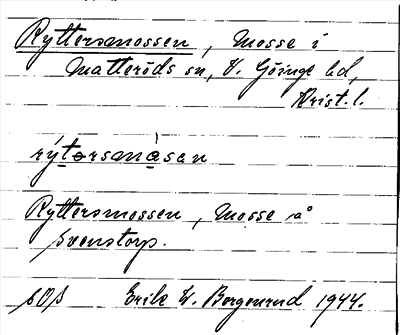 Ryttersmossen, Mosse i
Matteröds sn, V. Göinge hd,
Krist. l.
rýtərsmåsən
Ryttersmossen, Mosse på
Svenstorp.
SOS Erik W. Bergenrud 1944.